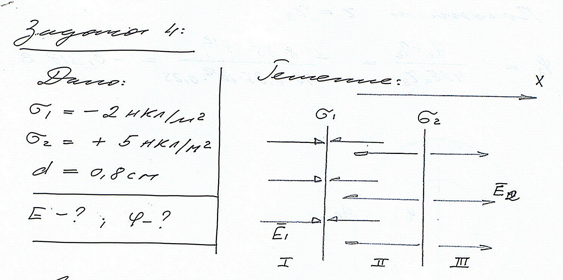 Задача 4:
Дано:
σ1 = - 2 нкл/м²
σ2 = + 5 нкл/м²
d = 0,8 см
E - ? ; φ - ?
Решение:
X
σ1 σ2
E̅1
E̅2
I II III